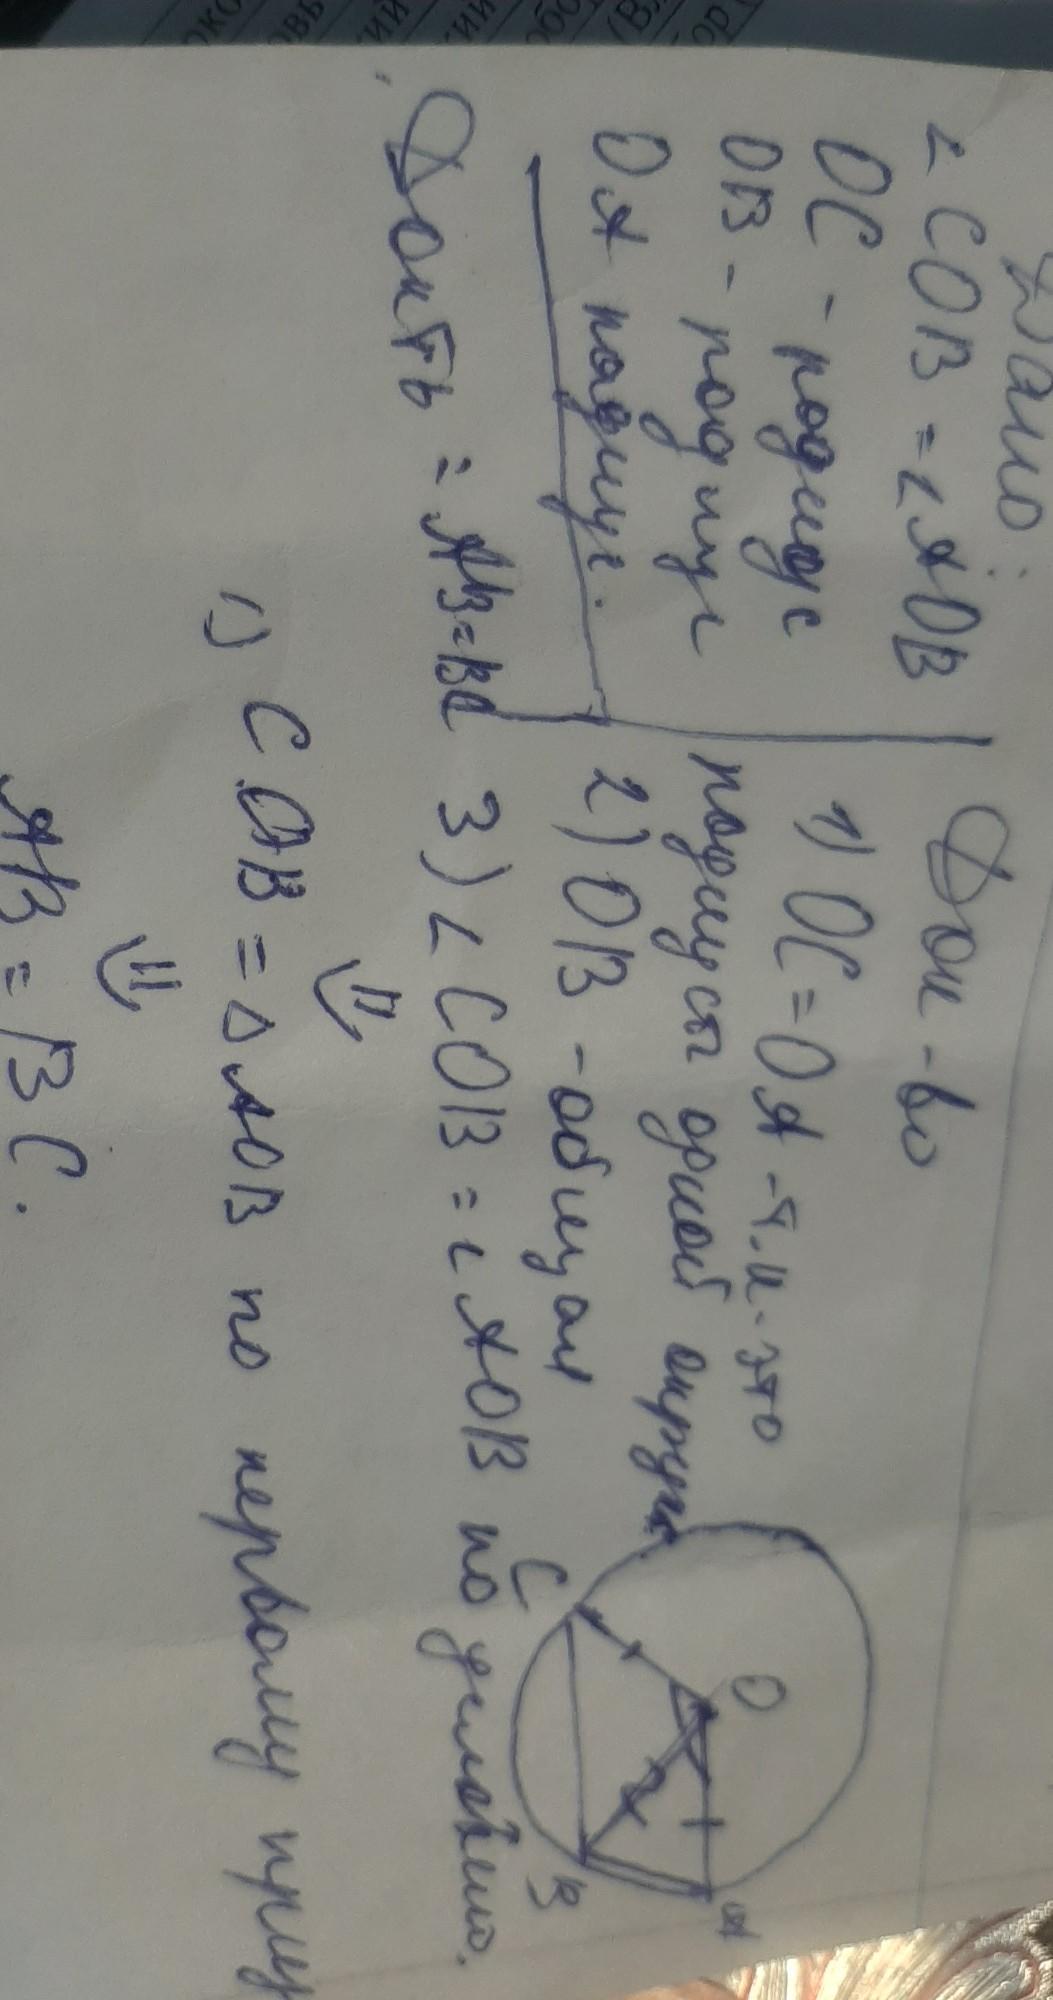 Дано:
∠COB = ∠AOB
OC - радиус
OB - радиус
OA радиус.
Док-ть: AB=BC
Док-во
1) OC=OA - т.к. это
радиусы одной окружн
2) OB - общая
3) ∠COB = ∠AOB по условию.
⇓
1) COB = ΔAOB по первому приз
⇓
AB = BC.
O
C
B
A